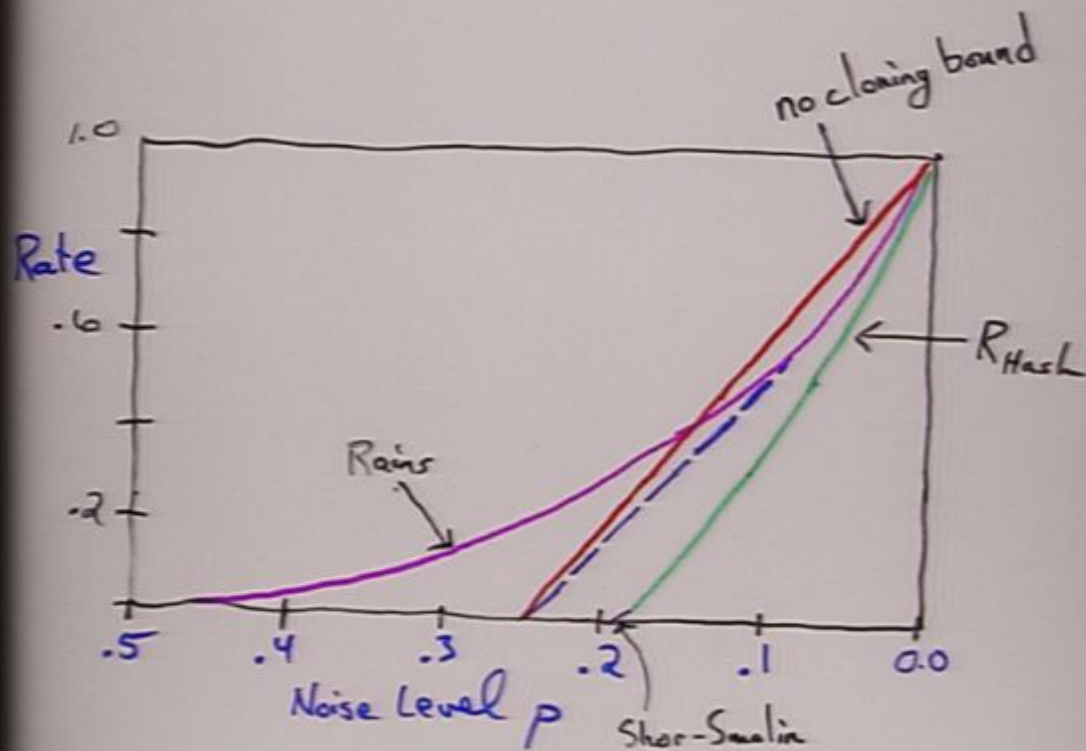 no cloning bound
1.0
Rate
.6
R Hash
Rains
.2
.5 .4 .3 .2 .1 0.0
Noise Level p
Shor-Smolin